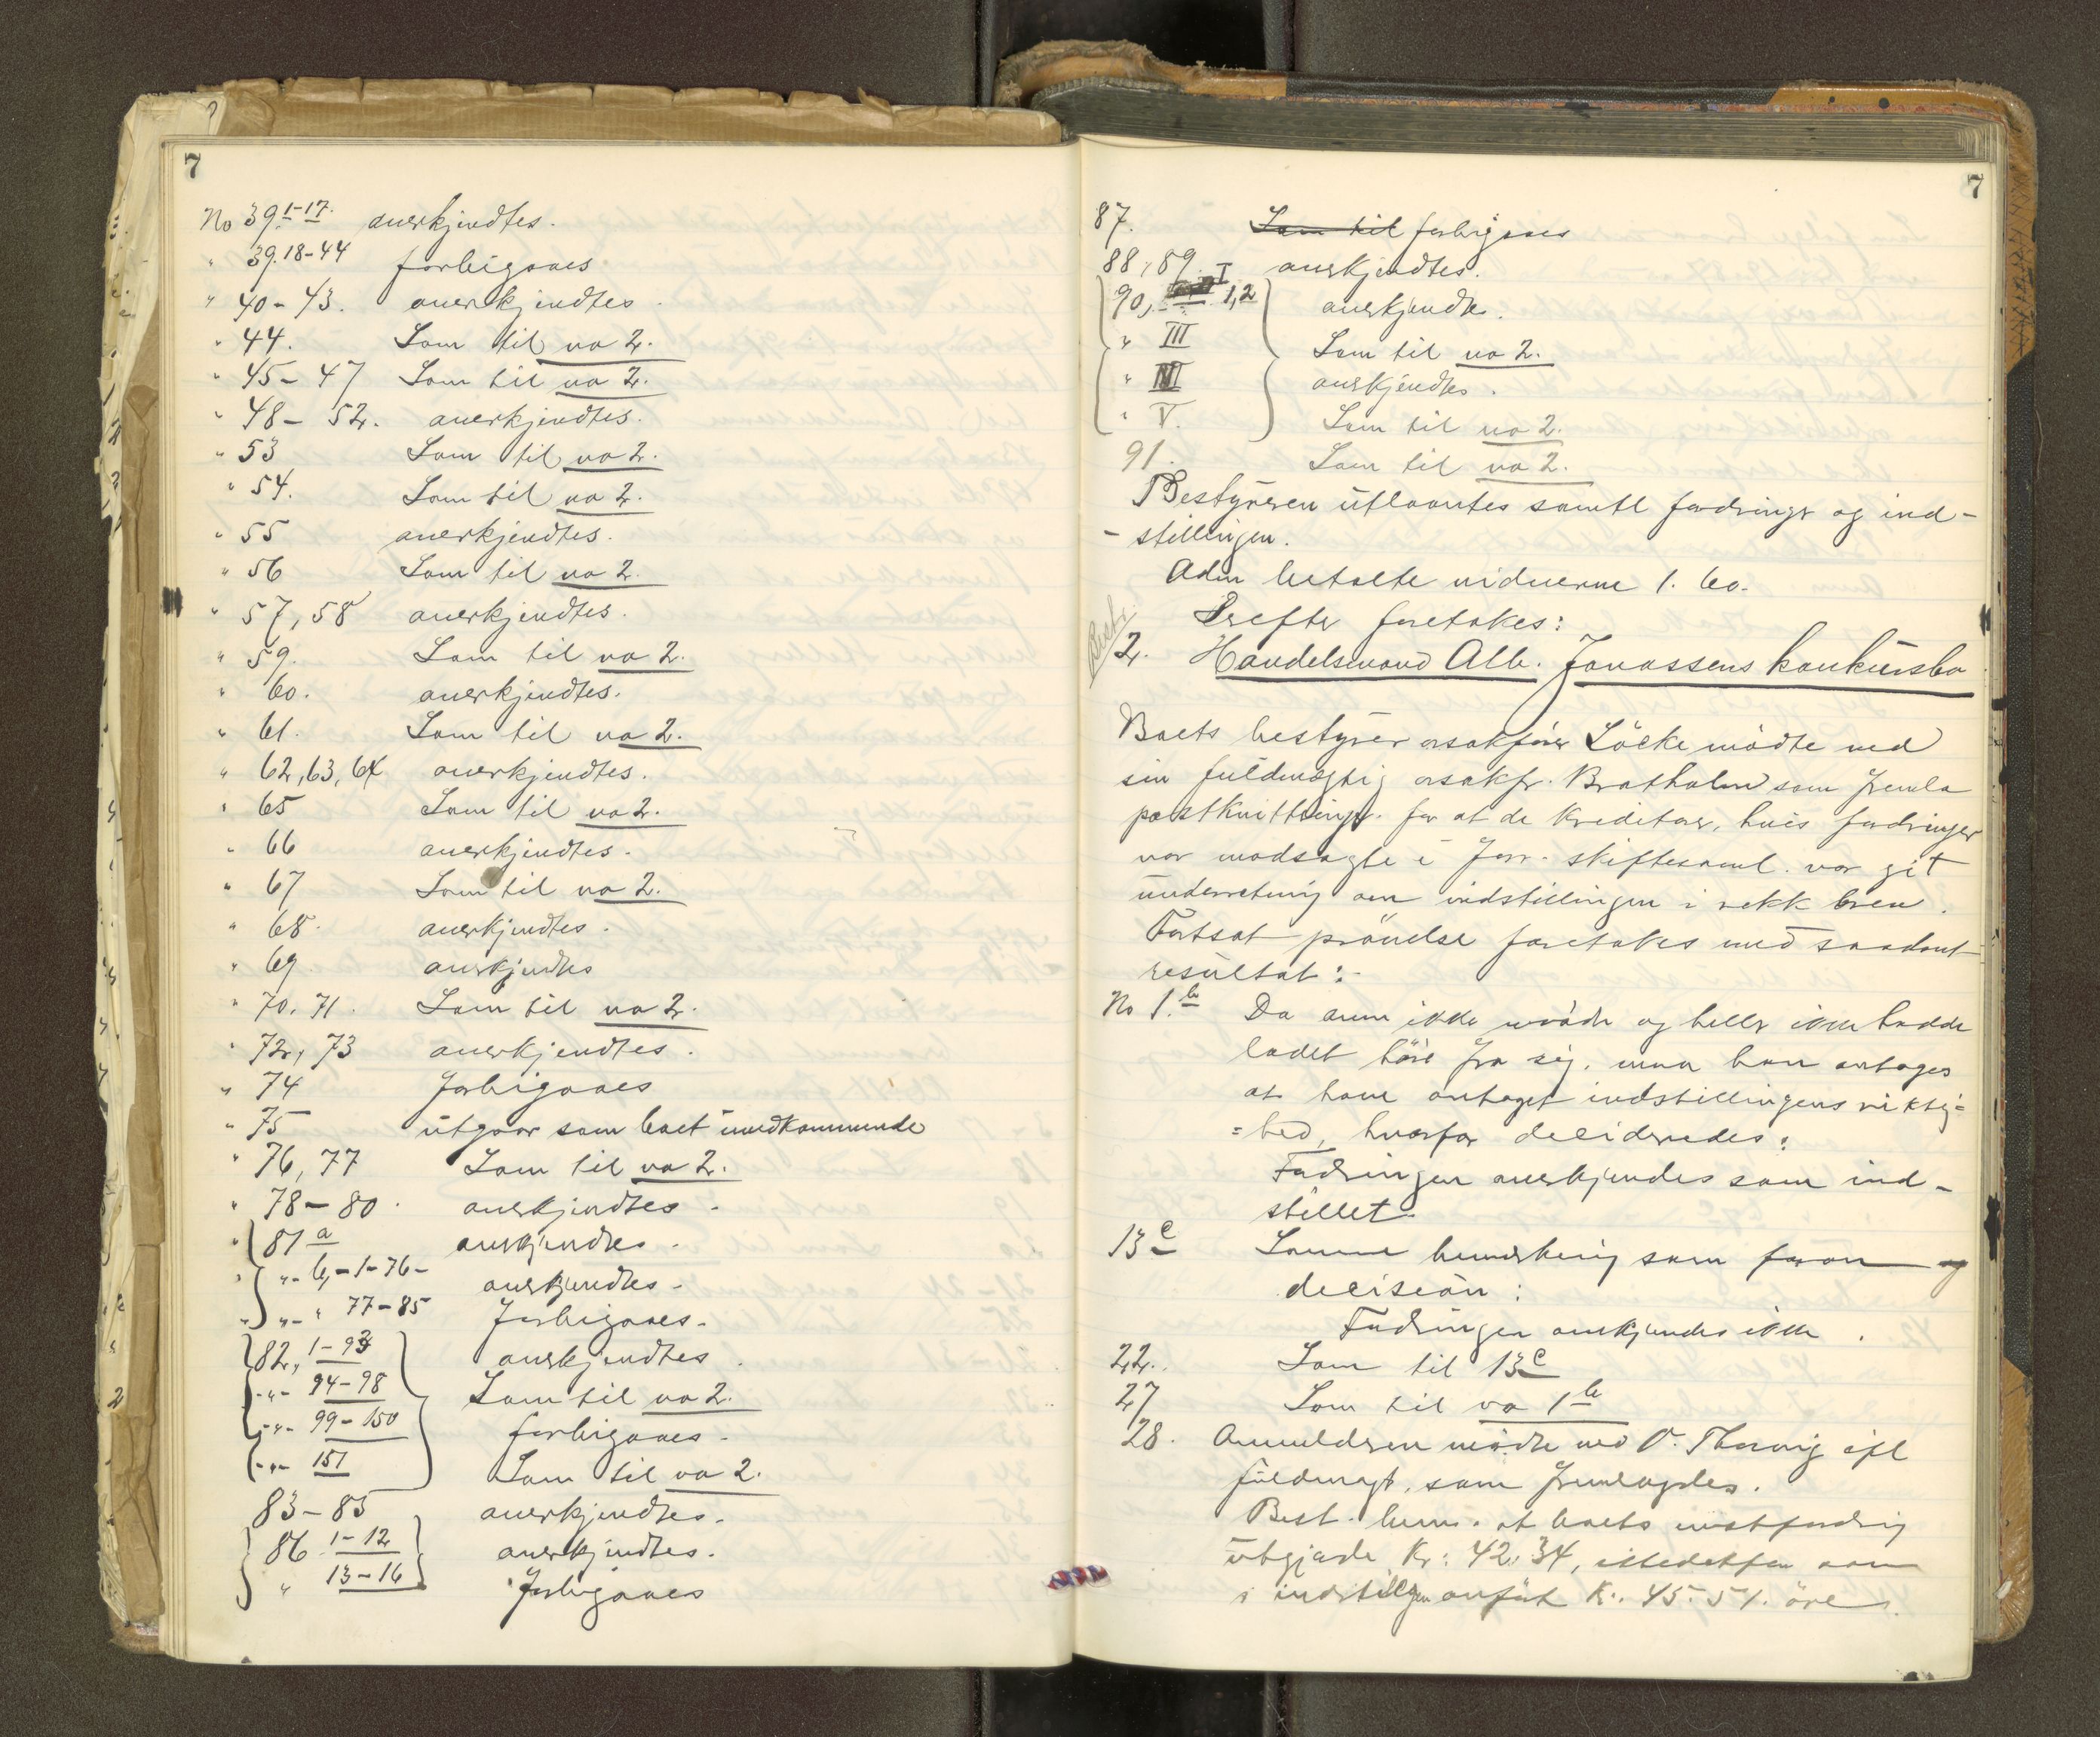 7
No 39. 1-17. anerkjendtes.
" 39. 18-44 forbigaaes
" 40-43. anerkjendtes.
" 44. Som til no 2.
" 45-47 Som til no 2.
" 48-52. anerkjendtes.
" 53 Som til no 2.
" 54. Som til no 2.
" 55 anerkjendtes.
" 56 Som til no 2.
" 57, 58 anerkjendtes.
" 59. Som til no 2.
" 60. anerkjendtes.
" 61. Som til no 2.
" 62, 63, 64 anerkjendtes.
" 65 Som til no 2.
" 66 anerkjendtes.
" 67 Som til no 2.
" 68. anerkjendtes.
" 69. anerkjendtes
" 70, 71. Som til no 2.
" 72, 73 anerkjendtes.
" 74 forbigaaes
" 75 utgaar som boet uvedkommende
" 76, 77 Som til no 2.
" 78-80. anerkjendtes.
" 81 a anerkjendtes.
" "- b, -1-76- anerkjendtes.
" "- " 77-85 forbigaaes.
82, 1-93 anerkjendtes.
-"- 94-98 Som til no 2.
-"- 99-150 forbigaaes.
-"- 151 Som til no 2.
83-85 anerkjendtes.
86 1-12 anerkjendtes.
" 13-16 forbigaaes
7
87. Som til forbigaaes
88, 89. anerkjendtes.
90, I 1,2 anerkjendtes.
" III Som til no 2.
" anerkjendtes.
" V. Som til no 2.
91. Som til no 2.
Bestyreren utlaantes samtl fordringer og ind-
-stillingen.
Adm betalte vidnerne 1.60.
Derefter foretokes:
Best
2. Handelsmand Alb. Jonassens konkursbo
Boets bestyrer osakfører Löcke mödte ved
sin fuldmægtig osakfr. Bratholm som fremla
postkvitteringer for at de kreditorer, hvis fordringer
var modsagte i forr. skiftesaml. var git
underretning om indstillingen i rekk brev.
Fortsat prövelse foretokes med saadant
resultat:-
No 1.b Da anm ikke mödte og heller ikke hadde
ladet höre fra sig, maa han antages
at have antaget indstillingens riktig-
=hed, hvorfor decideredes:
Fordringen anerkjendes som ind-
stillet.
13 c Samme bemerkning som foran og
decision:
Fordringen anerkjendes ikke.
22. Som til 13 c
27 Som til no 1 b
28. Anmelderen mödte ved O. Thorvig ifl
fuldmagt, som fremlagdes.
Best. bem. at boets motfordring
utgjorde Kr: 42,34, istedetfor som
i indstillgen anfört Kr. 45.51. öre.